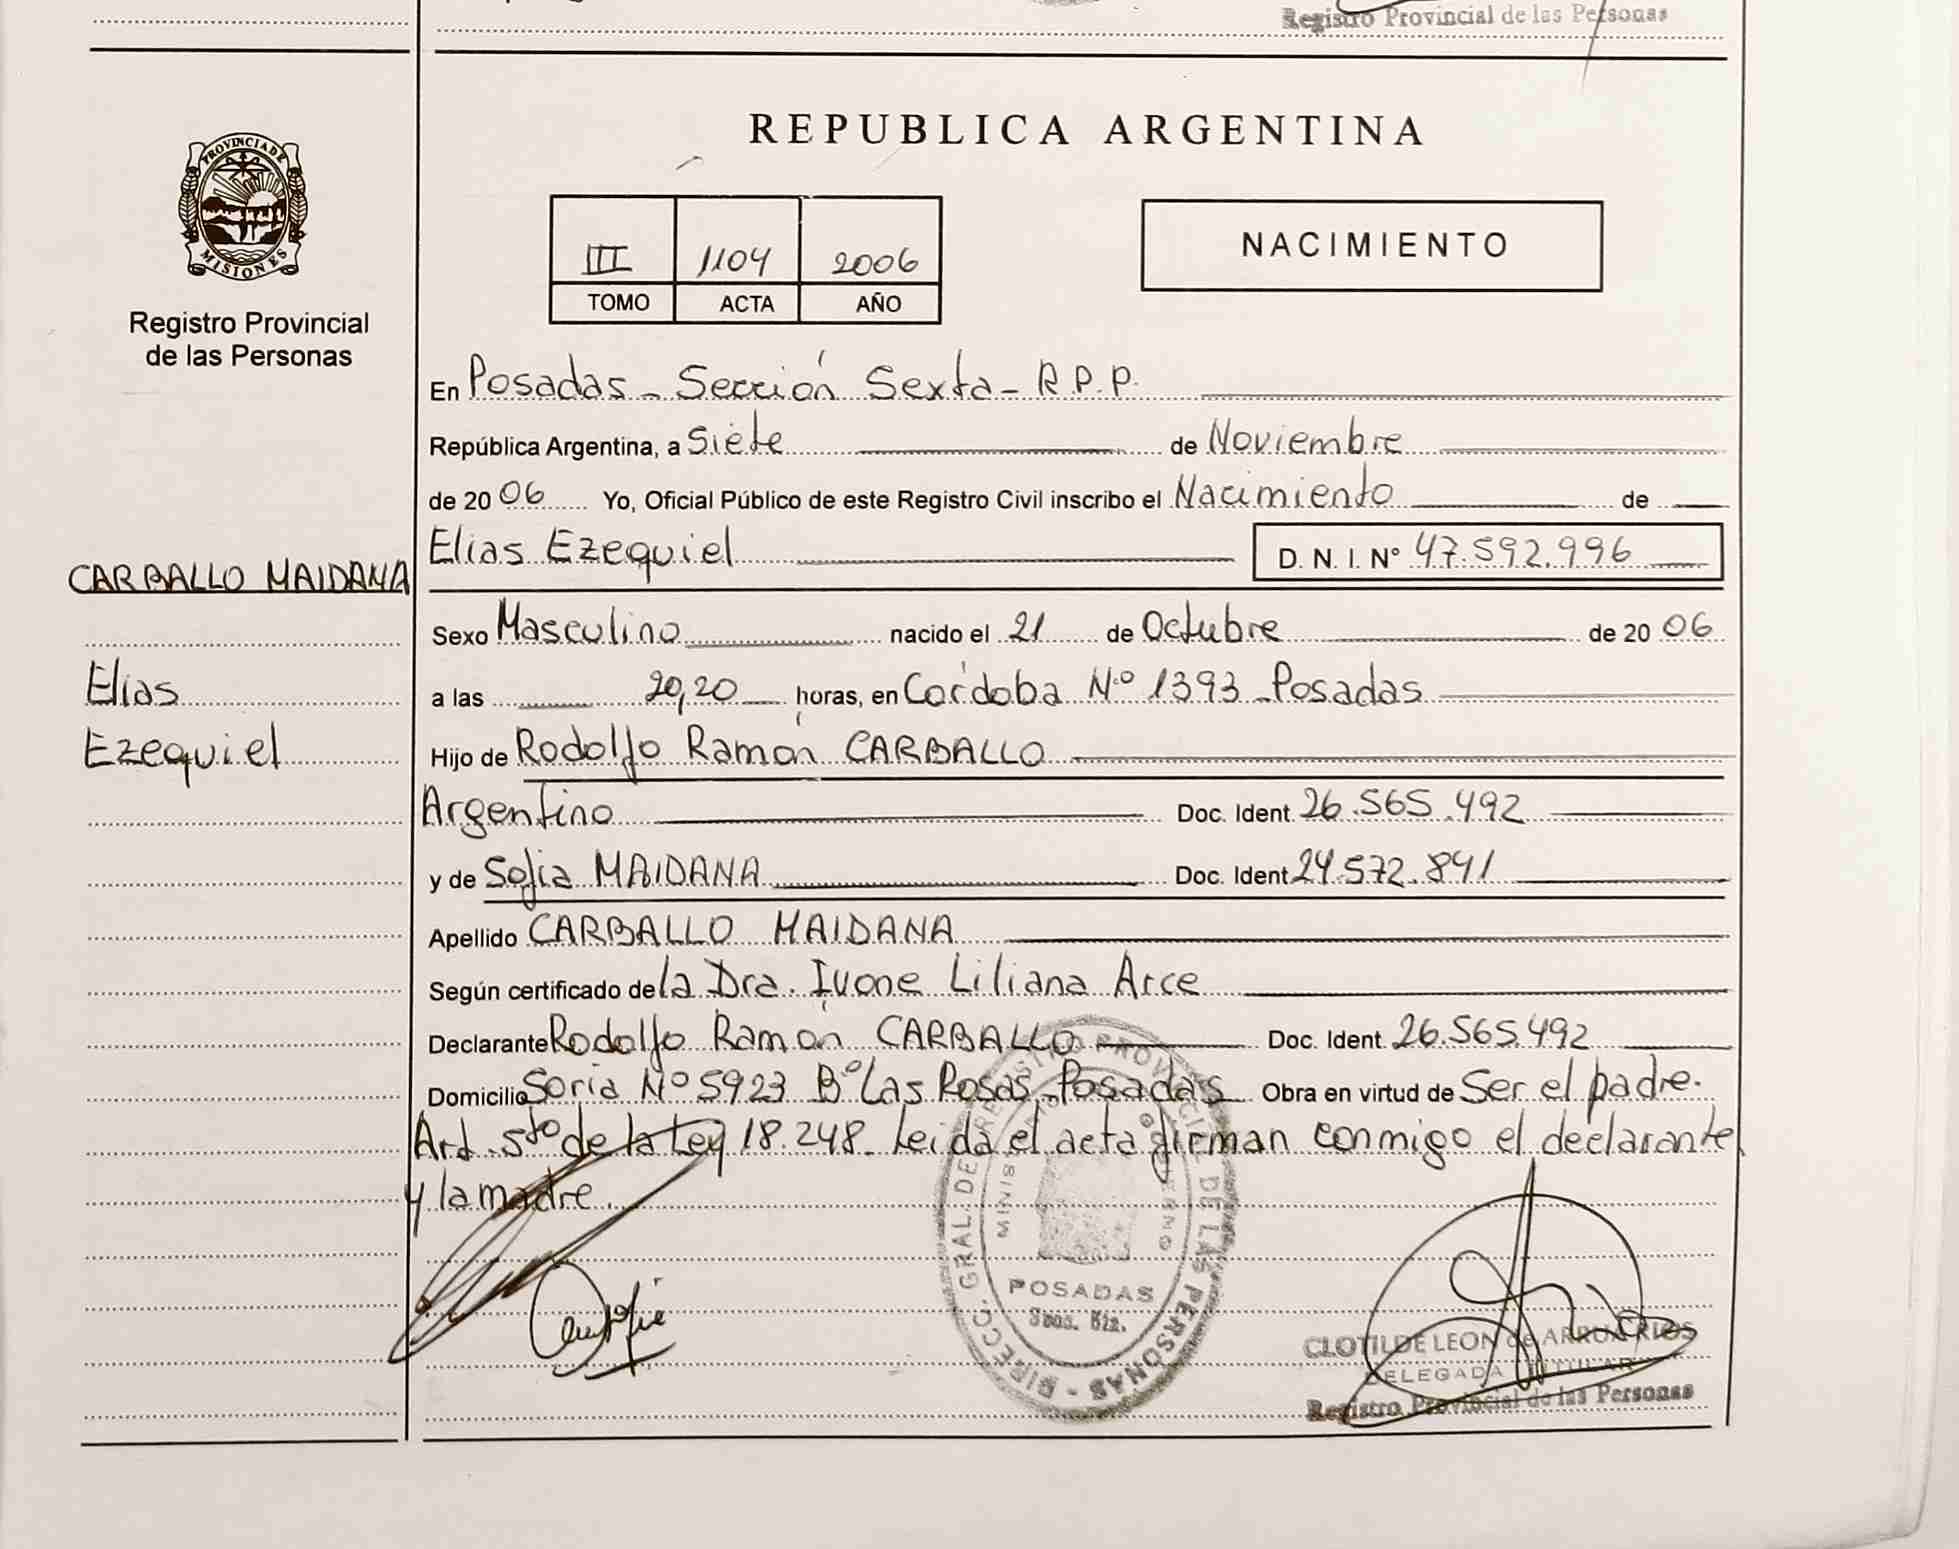 Registro Provincial de las Personas
PROVINCIA DE
MISIONES
Registro Provincial
de las Personas
CARBALLO MAIDANA
Elías
Ezequiel
REPUBLICA ARGENTINA
III 1104 2006
TOMO ACTA AÑO
NACIMIENTO
En Posadas - Sección Sexta - R.P.P.
República Argentina, a Siete de Noviembre
de 20 06 Yo, Oficial Público de este Registro Civil inscribo el Nacimiento de
Elías Ezequiel D. N. I. N° 47.592.996
Sexo Masculino nacido el 21 de Octubre de 20 06
a las 20,20 horas, en Córdoba N.º 1393 - Posadas
Hijo de Rodolfo Ramón CARBALLO
Argentino Doc. Ident. 26.565.492
y de Sofia MAIDANA Doc. Ident 24.572.841
Apellido CARBALLO MAIDANA
Según certificado de la Dra. Ivone Liliana Arce
Declarante Rodolfo Ramón CARBALLO Doc. Ident. 26.565.492
Domicilio Soria Nº 5923 Bº Las Rosas - Posadas Obra en virtud de Ser el padre.
Art. 5to de la Ley 18.248. Leída el acta firman conmigo el declarante
y la madre.
DIRECC. GRAL. DE REGISTRO PROVINCIAL DE LAS PERSONAS
POSADAS
CLOTILDE LEON de ARRUA RIOS
DELEGADA TITULAR
Registro Provincial de las Personas